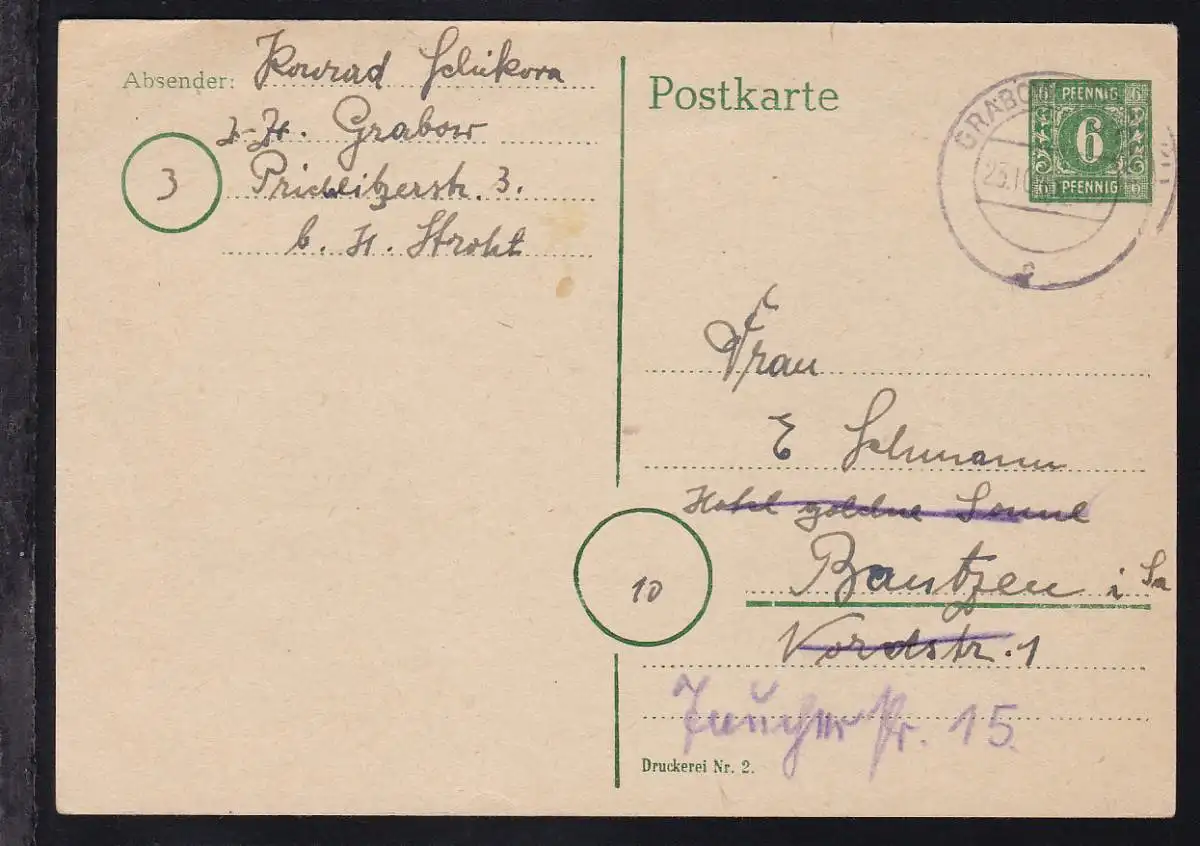 Absender: Konrad Schikora
z. Zt. Grabow
3
Prislitzerstr. 3.
b. H. Stroht
Postkarte
6 PFENNIG 6
6
6 PFENNIG 6
GRABO
25.10
c
Frau
E Schmann
Hotel goldne Sonne
10
Bautzen i Sa
Nordstr. 1
Taucher str. 15.
Druckerei Nr. 2.